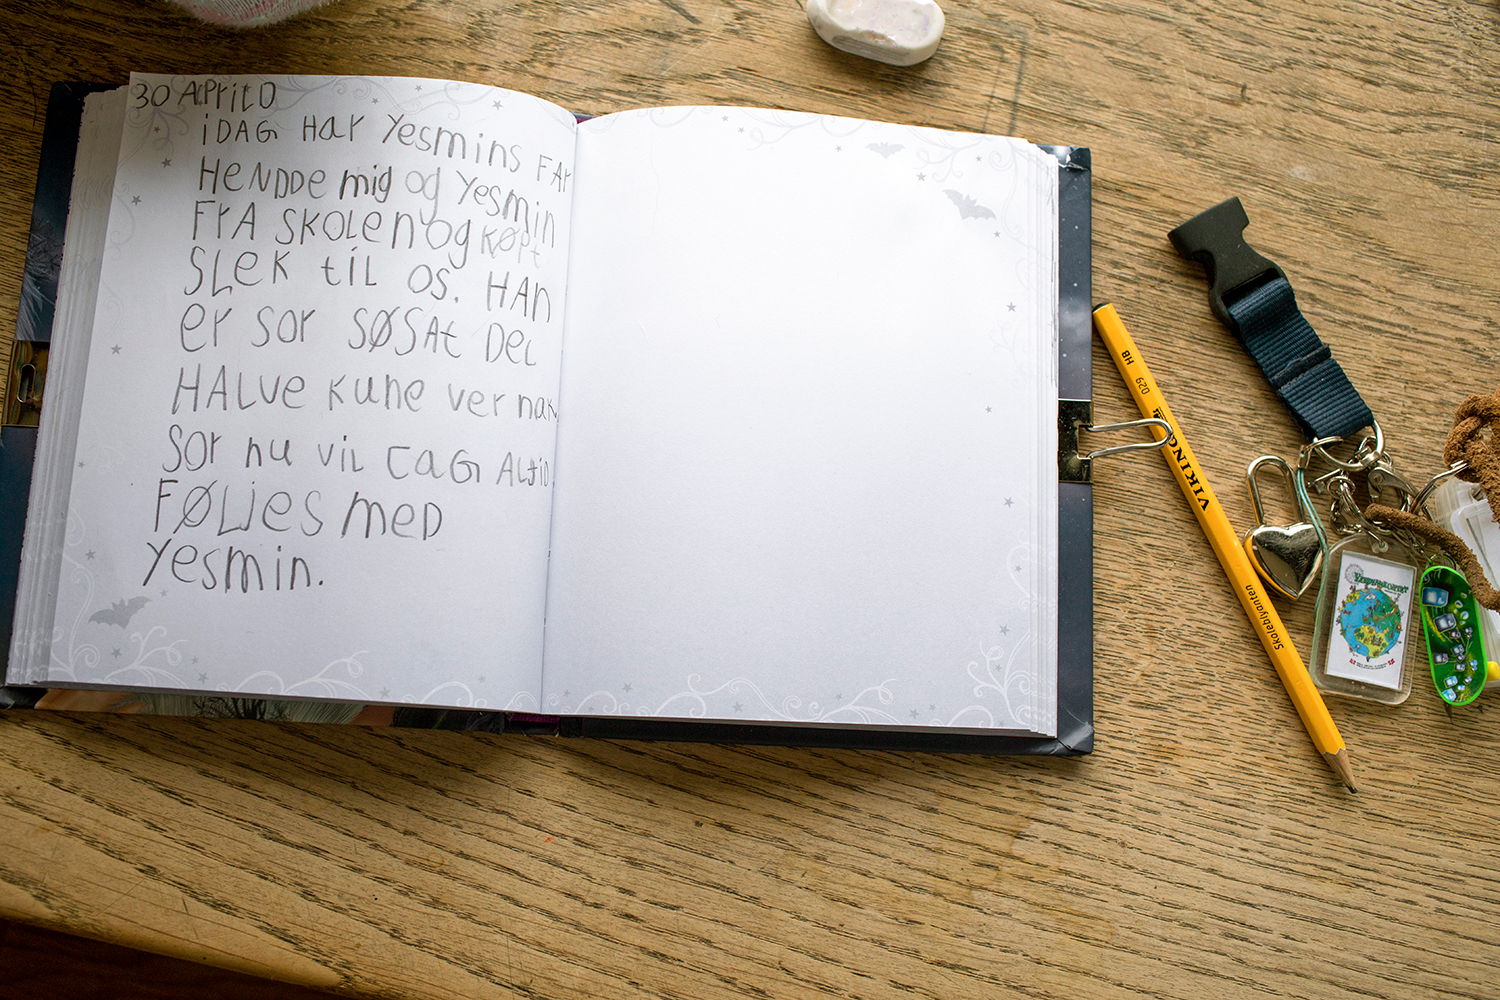 30 APriLD
iDAG Har Yesmins FAr
HeNDDe mig og Yesmin
FrA SKOLen og KØPt
SLeK tiL os. HAN
er sor SØSAt DeL
HALve Kune ver nak
Sor nu viL CaG ALtiD
FØLjes MeD
Yesmin.
029 HB
VIKING
Skoleblyanten